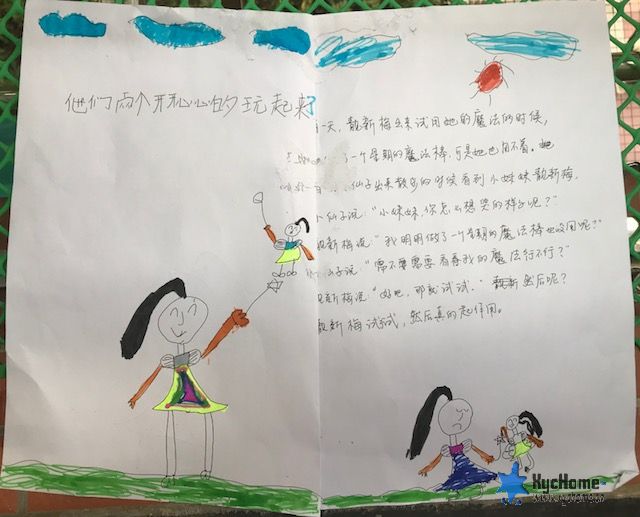 他们两个开开心心的玩起来了
一天，靓新梅出来试用她的魔法的时候，
了一个星期的魔法棒，可是她也用不着。她
仙子出来散步的时候看到小妹妹靓新梅。
小仙子说：“小妹妹，你怎么想哭的样子呢？”
靓新梅说：“我明明做了一个星期的魔法棒也没用呢？”
仙子说：“需不要需要看看我的魔法行不行？”
靓新梅说：“好吧，那就试试。”然后呢？
靓新梅试试，然后真的起作用。
KycHome